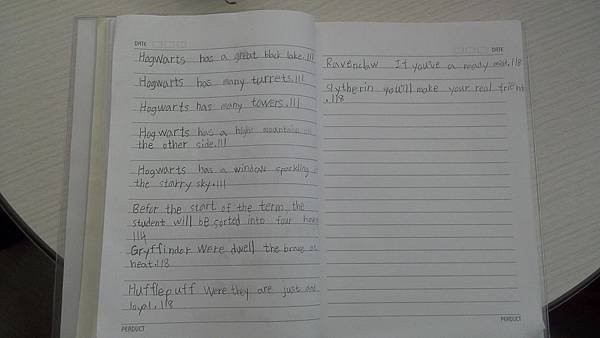 DATE
Hogwarts has a great black lake.111
Hogwarts has many turrets.111
Hogwarts has many towers.111
Hogwarts has a high mountain on
the other side.111
Hogwarts has a window sparkling
the starry sky.111
Befor the start of the term, the
student will be sorted into four
114
Gryffindor were dwell the brave at
heat.118
Hufflepuff were they are just and
loyal.118
PERDUCT
DATE
Ravenclaw If you've a ready mid.118
Slytherin you'll make your real frient
.118
PERDUCT